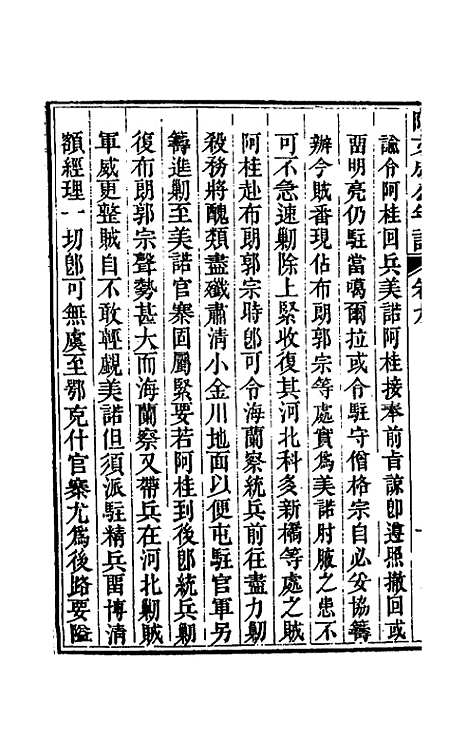 諭令阿桂回兵美諾阿桂接奉前旨諒卽遵照撤回或
畱明亮仍駐當噶爾拉或令駐守僧格宗自必妥協籌
辦今賊番現佔布朗郭宗等處實爲美諾肘腋之患不
可不急速勦除上緊收復其河北科多新橋等處之賊
阿桂赴布朗郭宗時卽可令海蘭察統兵前往盡力勦
殺務將醜類盡殲肅清小金川地面以便屯駐官軍另
籌進勦至美諾官寨固屬緊要若阿桂到後卽統兵勦
復布朗郭宗聲勢甚大而海蘭察又帶兵在河北勦賊
軍威更整賊自不敢輕覷美諾但須派駐精兵畱博清
額經理一切卽可無虞至鄂克什官寨尤爲後路要隘